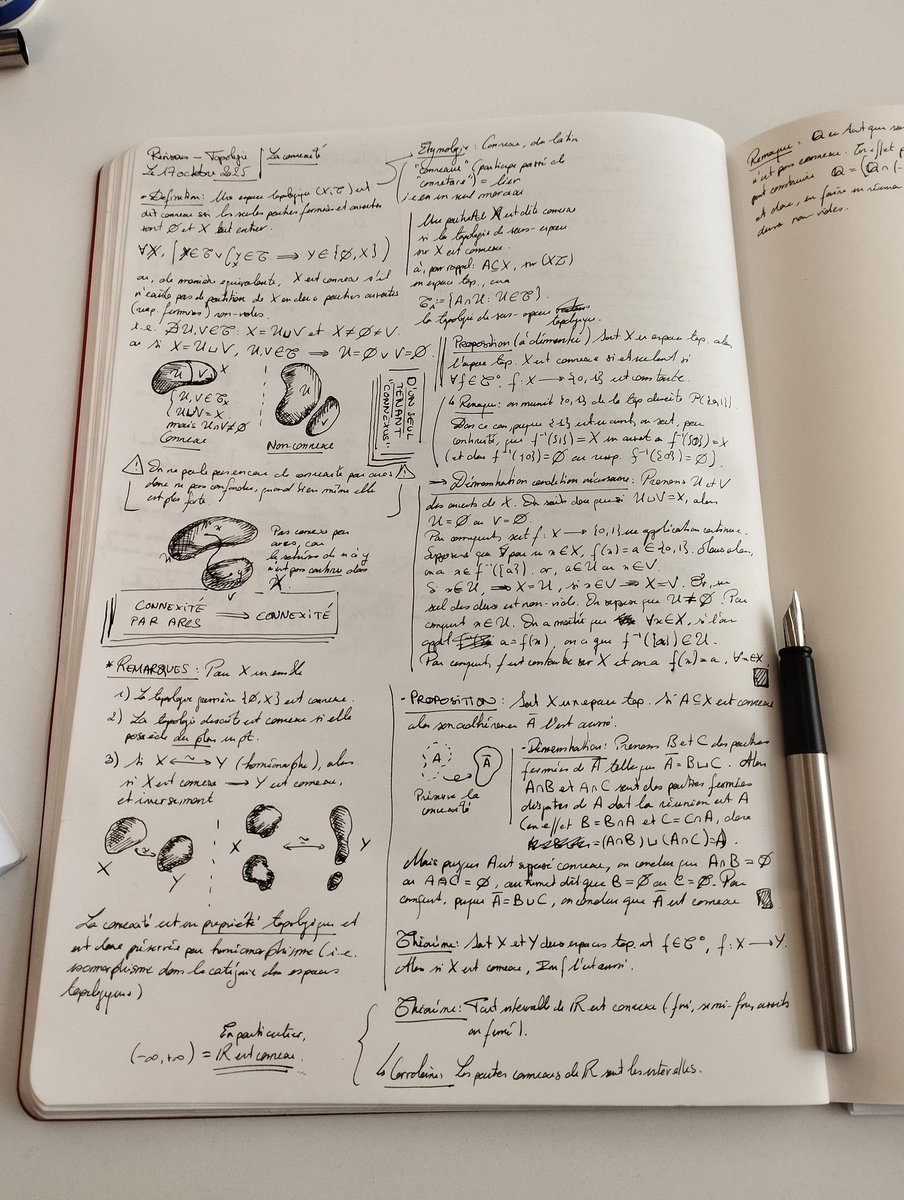 Révisions – Topologie
Le 17 octobre 2025
La connexité
- Définition : Un espace topologique (X,τ) est
dit connexe si les seules parties fermées et ouvertes
sont ∅ et X tout entier.
ou, de manière équivalente, X est connexe s'il
n'existe pas de partition de X en deux parties ouvertes
(resp. fermées) non-vides.
i.e. ∄U,V∈τ : X = U⊔V et X≠∅≠V.
ou si X = U⊔V, U,V∈τ ⟹ U=∅ ∨ V=∅.
U V X
U
V
{ U,V∈τ
U∪V=X
mais U∩V≠∅
Connexe
Non-connexe
D'UN SEUL
TENANT
"CONNEXUS"
On ne parle pas encore de connexité par arcs
donc ne pas confondre, quand bien même elle
est plus forte.
x
y
Pas connexe par
arcs, car
X
CONNEXITÉ
PAR ARCS ⟶ CONNEXITÉ
* REMARQUES : Pour X un ensemble
1) La topologie grossière {∅,X} est connexe.
2) La topologie discrète est connexe si elle
possède au plus un pt.
3) Si X ⟷ Y (homéomorphe), alors
si X est connexe ⟶ Y est connexe,
et inversement
X
Y
X ≃ Y
La connexité est une propriété topologique et
est donc préservée par homéomorphisme (i.e.
isomorphisme dans la catégorie des espaces
topologiques)
En particulier,
(-∞,+∞) = ℝ est connexe.
Étymologie : Connexe, du latin
"connexus" (participe passé de
"connectere") = lier
i.e. en un seul morceau
Une partie A de X est dite connexe
si la topologie de sous-espace
sur X est connexe.
où, par rappel : A⊆X, sur (X,τ)
un espace top., on a
τ_A := {A∩U : U∈τ}.
la topologie de sous-espace
topologique.
Proposition (à démontrer) Soit X un espace top. alors
l'espace top. X est connexe si et seulement si
∀f∈τ°, f : X ⟶ {0,1} est constante.
↳ Remarque : on munit {0,1} de la top discrète P({0,1}).
Dans ce cas, puisque {1} est un ouvert, on sait, par
continuité, que f⁻¹({1}) = X ou f⁻¹({0}) = X
(et donc f⁻¹({0}) = ∅ ou resp. f⁻¹({0}) = ∅).
→ Démonstration condition nécessaire : Prenons U et V
des ouverts de X. On sait donc que si U⊔V=X, alors
U=∅ ou V=∅.
Par conséquent, soit f : X ⟶ {0,1} une application continue.
Supposons que pour un x∈X, f(x) = a∈{0,1}. Alors,
on a x∈f⁻¹({a}). or, x∈U ou x∈V.
Si x∈U, ⟹ X=U, si x∈V ⟹ X=V. Or, un
seul des deux est non-vide. On suppose que U≠∅. Par
conséquent x∈U. On a montré que ∀x∈X, si l'on
a = f(x), on a que f⁻¹({a})∈U.
Par conséquent, f est constante sur X et on a f(x)=a, ∀x∈X.
- PROPOSITION : Soit X un espace top. Si A⊆X est connexe
alors son adhérence Ā l'est aussi.
A Ā
Préserve la
connexité
- Démonstration : Prenons B et C des parties
fermées de Ā telle que Ā = B⊔C. Alors
A∩B et A∩C sont des parties fermées
disjointes de A dont la réunion est A
(en effet B = B∩A et C = C∩A, donc
= (A∩B)⊔(A∩C) = A).
Mais puisque A est supposé connexe, on conclue que A∩B = ∅
ou A∩C = ∅, autrement dit que B=∅ ou C=∅. Par
conséquent, puisque Ā = B⊔C, on conclue que Ā est connexe
Théorème : Soit X et Y deux espaces top. et f∈τ°, f : X ⟶ Y.
Alors si X est connexe, Im f l'est aussi.
Théorème : Tout intervalle de ℝ est connexe (fini, semi-fini, ouverts
ou fermé).
↳ Corrolaire : Les parties connexes de ℝ sont les intervalles.
Remarque : ℚ en tant que
n'est pas connexe. En effet
peut construire ℚ = (ℚ∩(-
et donc, en faire un réunion
deux non-vides.